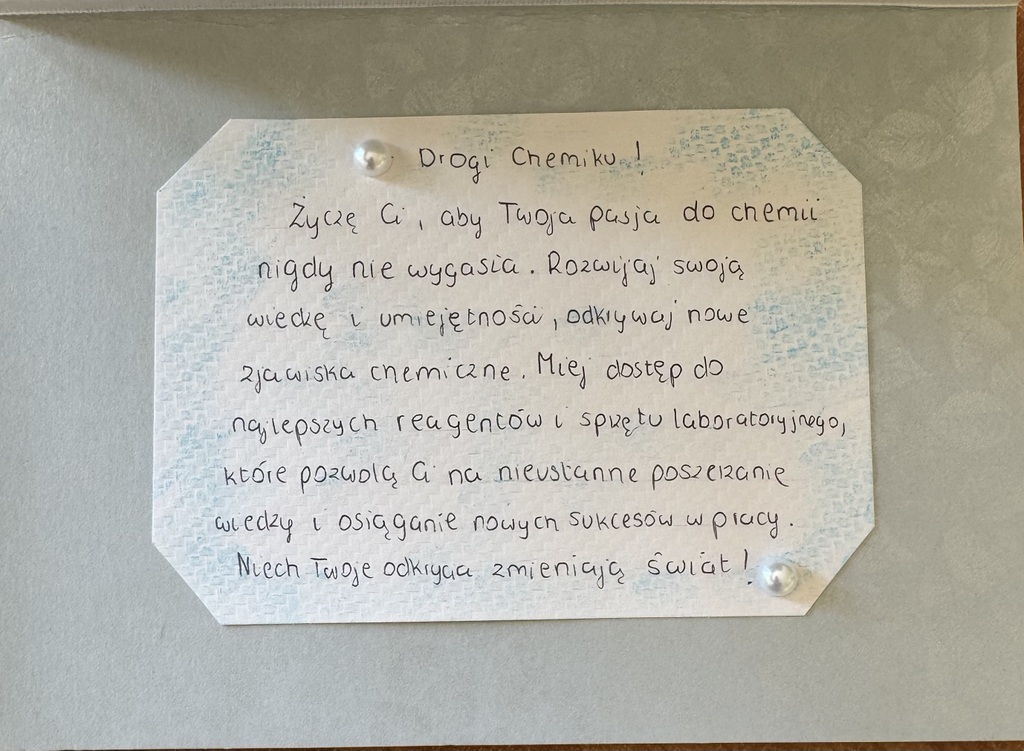 Drogi Chemiku!
Życzę Ci, aby Twoja pasja do chemii
nigdy nie wygasła. Rozwijaj swoją
wiedzę i umiejętności, odkrywaj nowe
zjawiska chemiczne. Miej dostęp do
najlepszych reagentów i sprzętu laboratoryjnego,
które pozwolą Ci na nieustanne poszerzanie
wiedzy i osiąganie nowych sukcesów w pracy.
Niech Twoje odkrycia zmieniają świat!